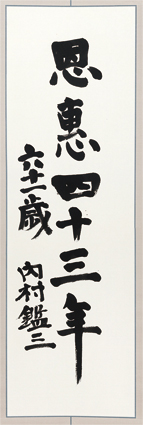 恩恵四十三年
六十一歳
内村鑑三